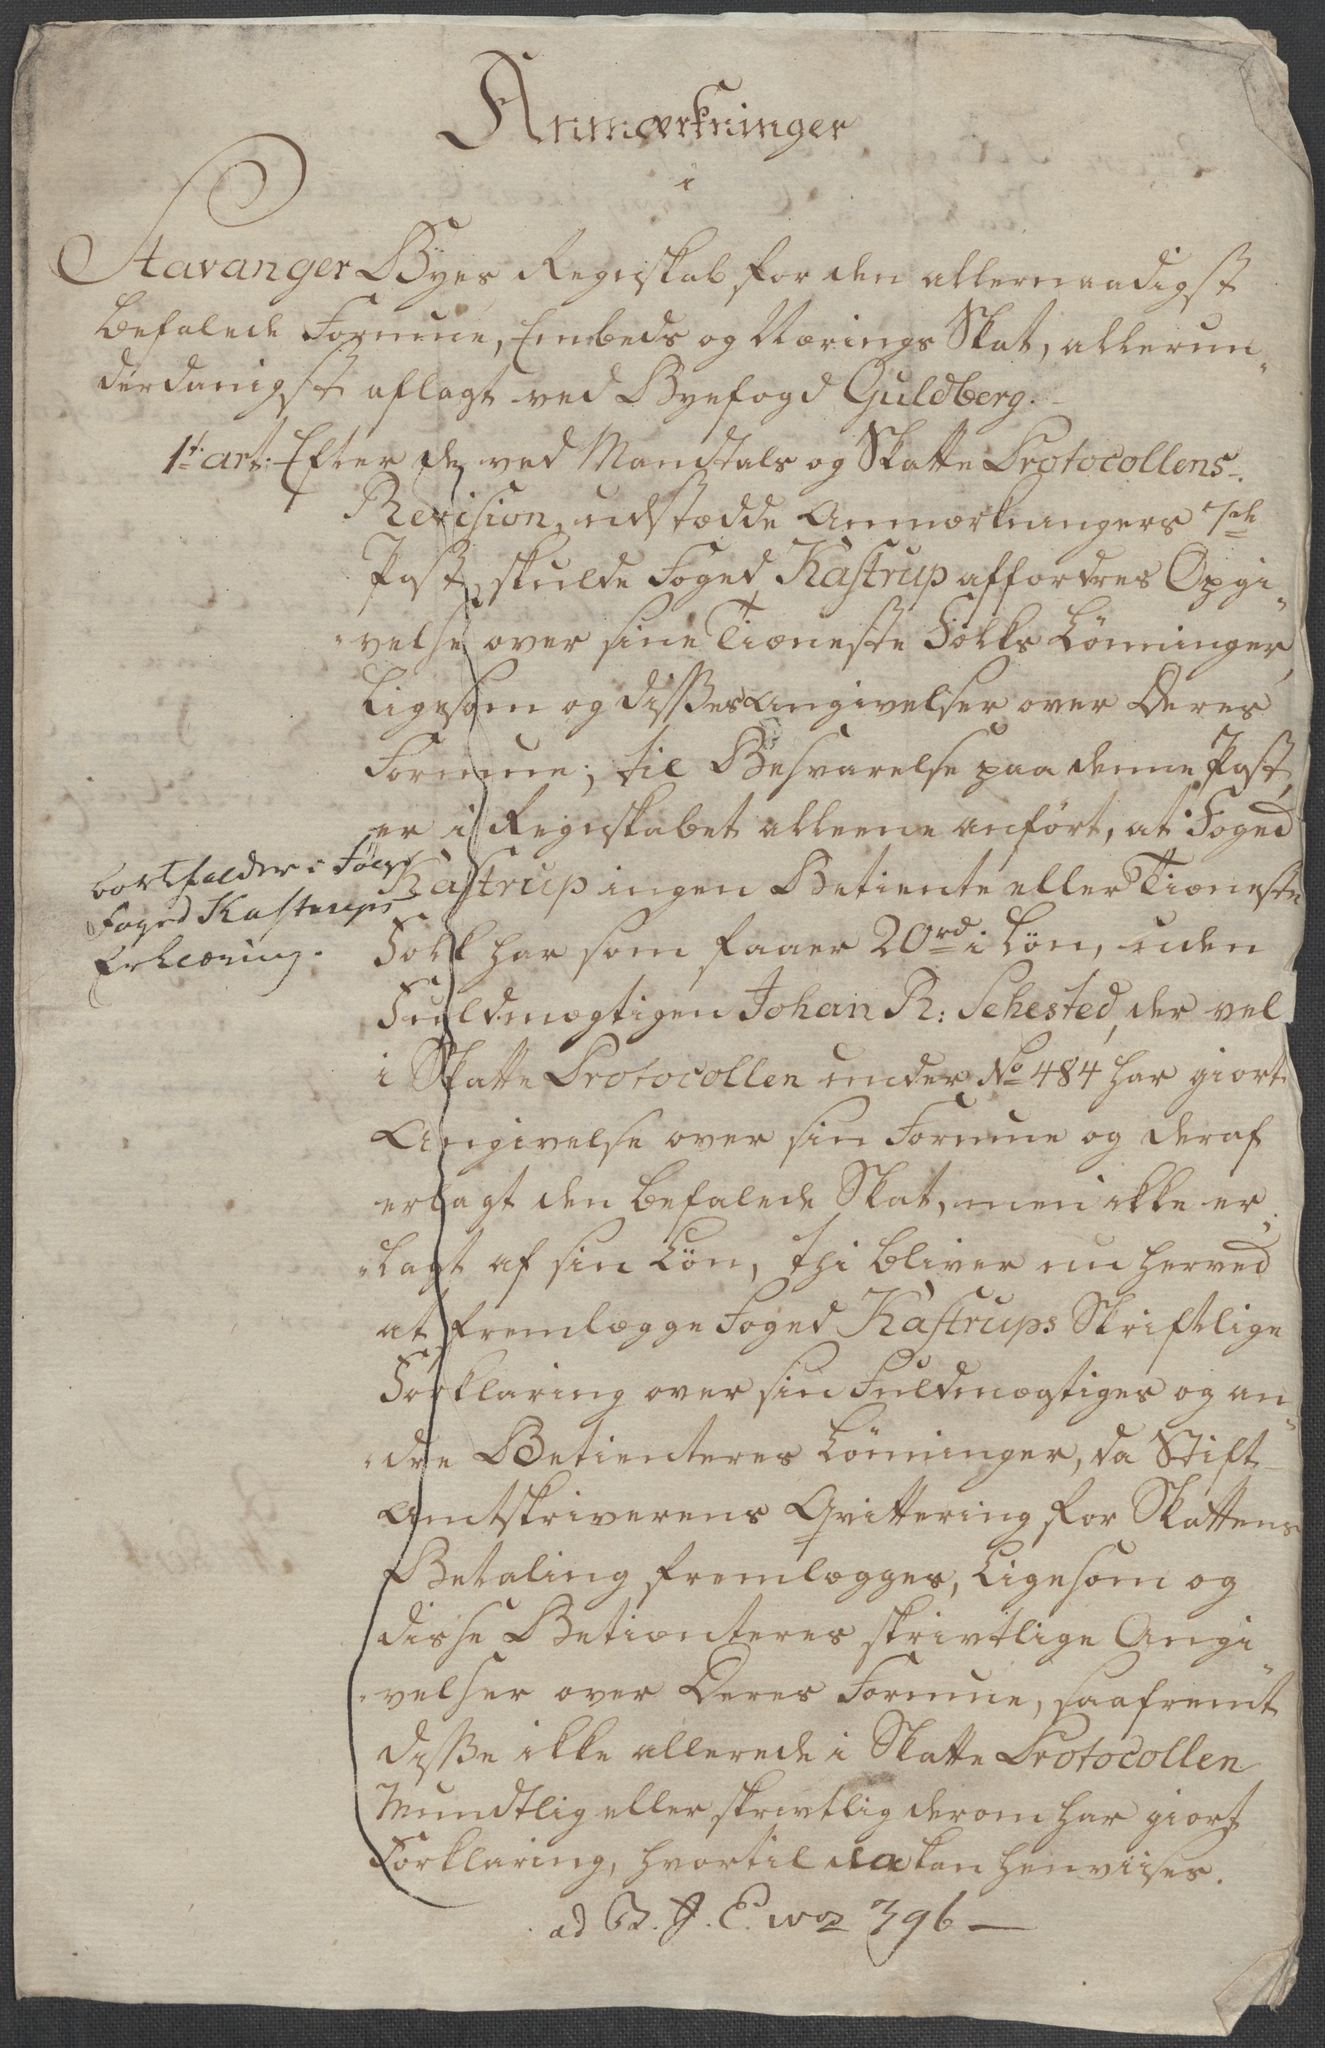 Anmærkninger
i
Stavanger Byes Regnskab for den allernaadigst
befalede Formue, Embeds og Nærings Skat, allerun¬
derdanigst aflagt ved Byefogd Guldberg.
1te art: Efter de ved Mandtals og Skatte Protocollens
Revision, udstædde Anmærkningers 7de
Post, skulde Foged Kastrup affordres Opgi¬
velse over sine Tieneste Folks Lønninger,
Ligesom og disses Angivelser over Deres
Formue; til Besvarelse paa denne Post,
er i Regnskabet alleene anført, at Foged
Kastrup ingen Betiente eller Tieneste
Folk har som faaer 20rd i Løn, uden
Fuldmægtigen Johan R: Sehested, der vel
i Skatte Protocollen under No 484 har giort
Angivelse over sin Formue og deraf
erlagt den befalede Skat, men ikke er¬
lagt af sin Løn, thi bliver nu herved
at fremlægge Foged Kastrups Skriftlige
Forklaring over sin Fuldmægtiges og an¬
dre Betienteres Lønninger, da Stift¬
amtskriverens Qvittering for Skattens
Betaling fremlægges, Ligesom og
disse Betienteres skrivtlige Angi¬
velser over Deres Formue, saafremt
disse ikke allerede i Skatte Protocollen
Mundtlig eller skrivtlig derom har giort
Forklaring, hvortil da kan henviises.
bortfalder i Følge
Foged Kastrups
Erklæring.
ad 396